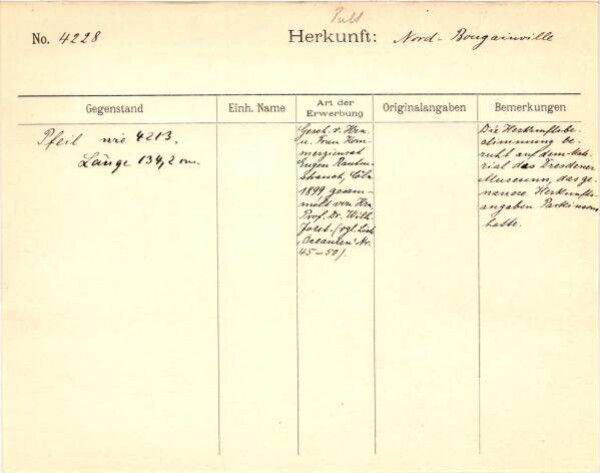 Pult
No. 4228
Herkunft: Nord-Bougainville
Gegenstand
Einh. Name
Art der
Erwerbung
Originalangaben
Bemerkungen
Pfeil wie 4213.
Länge 134,2 cm.
Gesch. v. Hrn
u. Frau Kom-
merzienrat
Eugen Rauten-
strauch, Cöln
1899, gesam-
melt von Hrn
Prof. Dr. Wilh.
Joest. (vgl. List.
Oceanien Nr.
45-50).
Die Herkunftsbe-
stimmung be-
ruht auf dem Mate-
rial des Dresdener
Museums, das ge-
nauere Herkunfts-
angaben Parkinsons
hatte.